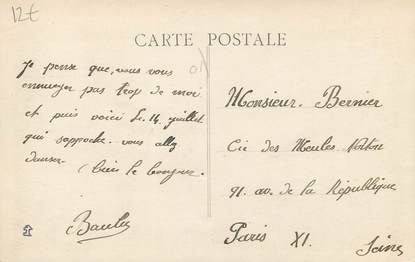 12€
CARTE POSTALE
Je pense que, vous vous
ennuyer pas trop de moi
et puis voici le 14 juillet
qui s'approche. vous allez
danser.
bien le bonjour
Monsieur. Bernier
Cie des Meules Norton
91. av. de la République
Paris XI.
Seine